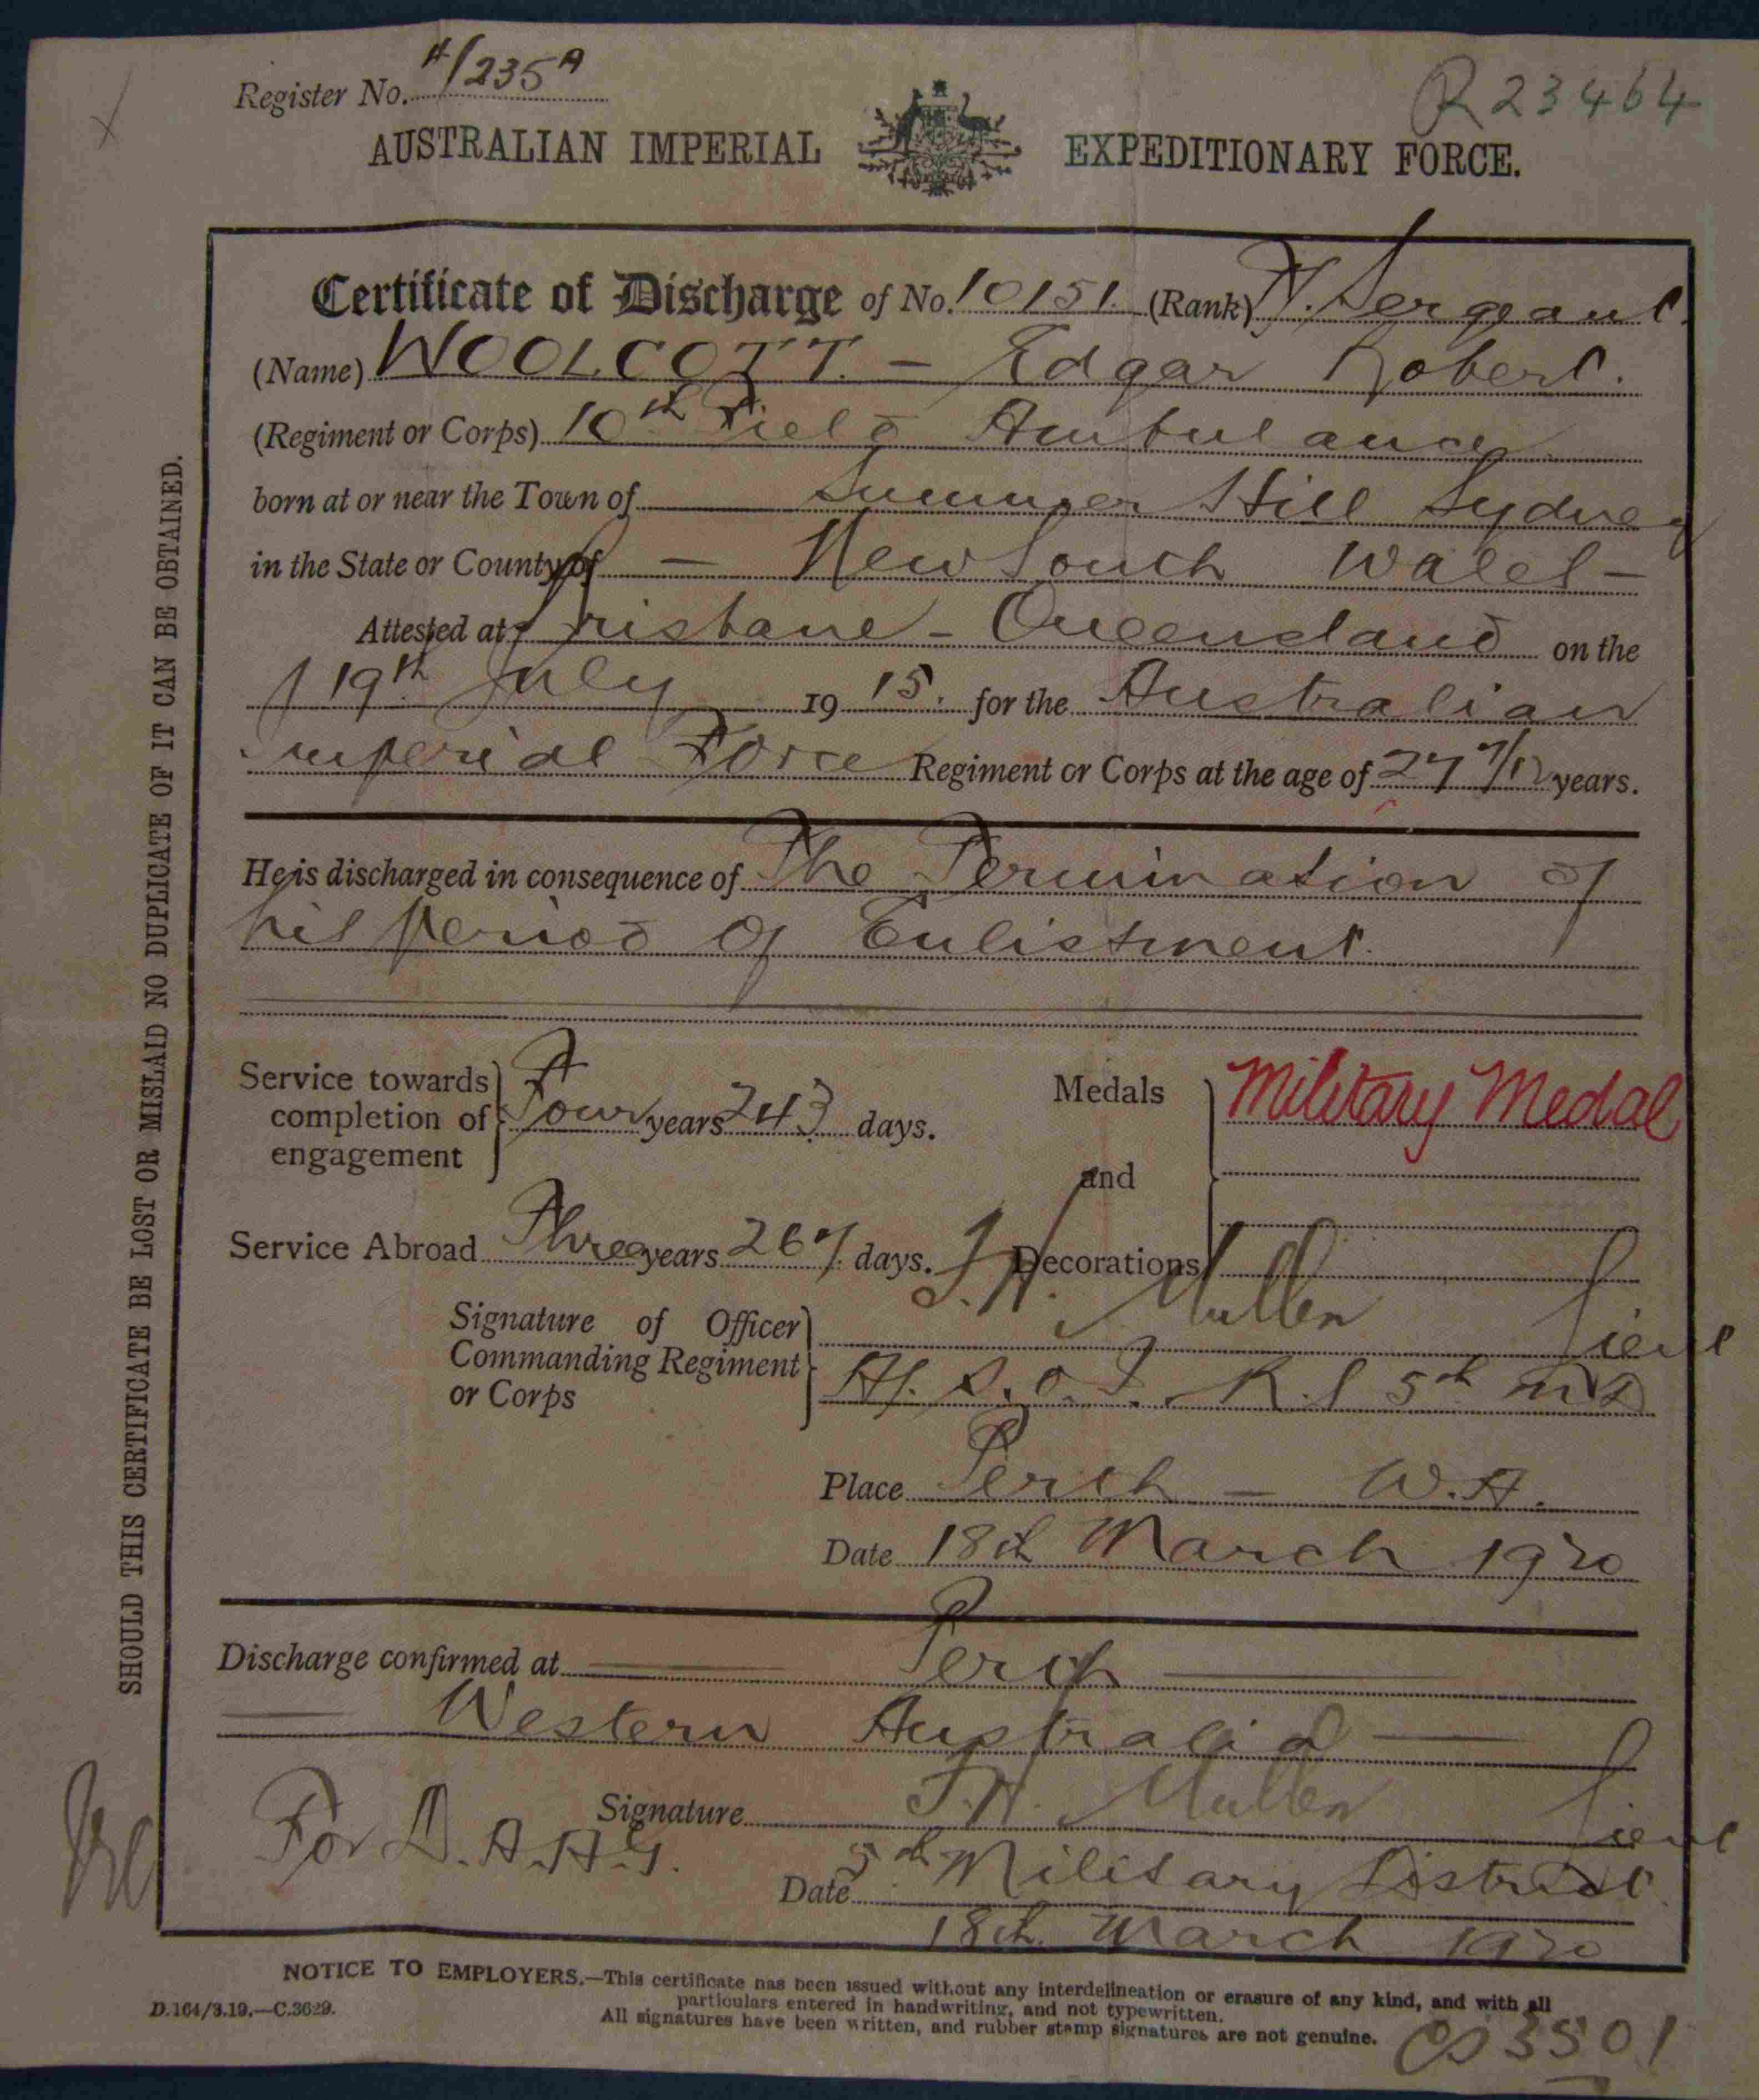 Register No. A/235A
R23464
AUSTRALIAN IMPERIAL EXPEDITIONARY FORCE.
Certificate of Discharge of No. 10151. (Rank) T/. Sergeant.
(Name) WOOLCOTT. – Edgar Robert.
(Regiment or Corps) 10th Field Ambulance
born at or near the Town of Summer Hill Sydney
in the State or County of – New South Wales –
Attested at Brisbane – Queensland on the
19th July 19 15. for the Australian
Imperial Force Regiment or Corps at the age of 27 7/12 years.
He is discharged in consequence of The Termination of
his Period of Enlistment.
Service towards completion of engagement Four years 243 days.
Medals and Decorations Military Medal
Service Abroad Three years 267 days.
Signature of Officer Commanding Regiment or Corps J.H. Mullen Lieut
5th MD
Place Perth – W.A.
Date 18th March 1920
Discharge confirmed at Perth
Western Australia
Signature J.H. Mullen Lieut
For D.A.A.G. 5th Military District.
Date 18th March 1920
SHOULD THIS CERTIFICATE BE LOST OR MISLAID NO DUPLICATE OF IT CAN BE OBTAINED.
NOTICE TO EMPLOYERS.—This certificate has been issued without any interdelineation or erasure of any kind, and with all
particulars entered in handwriting, and not typewritten.
All signatures have been written, and rubber stamp signatures are not genuine.
D.164/3.19.—C.3629.
3501